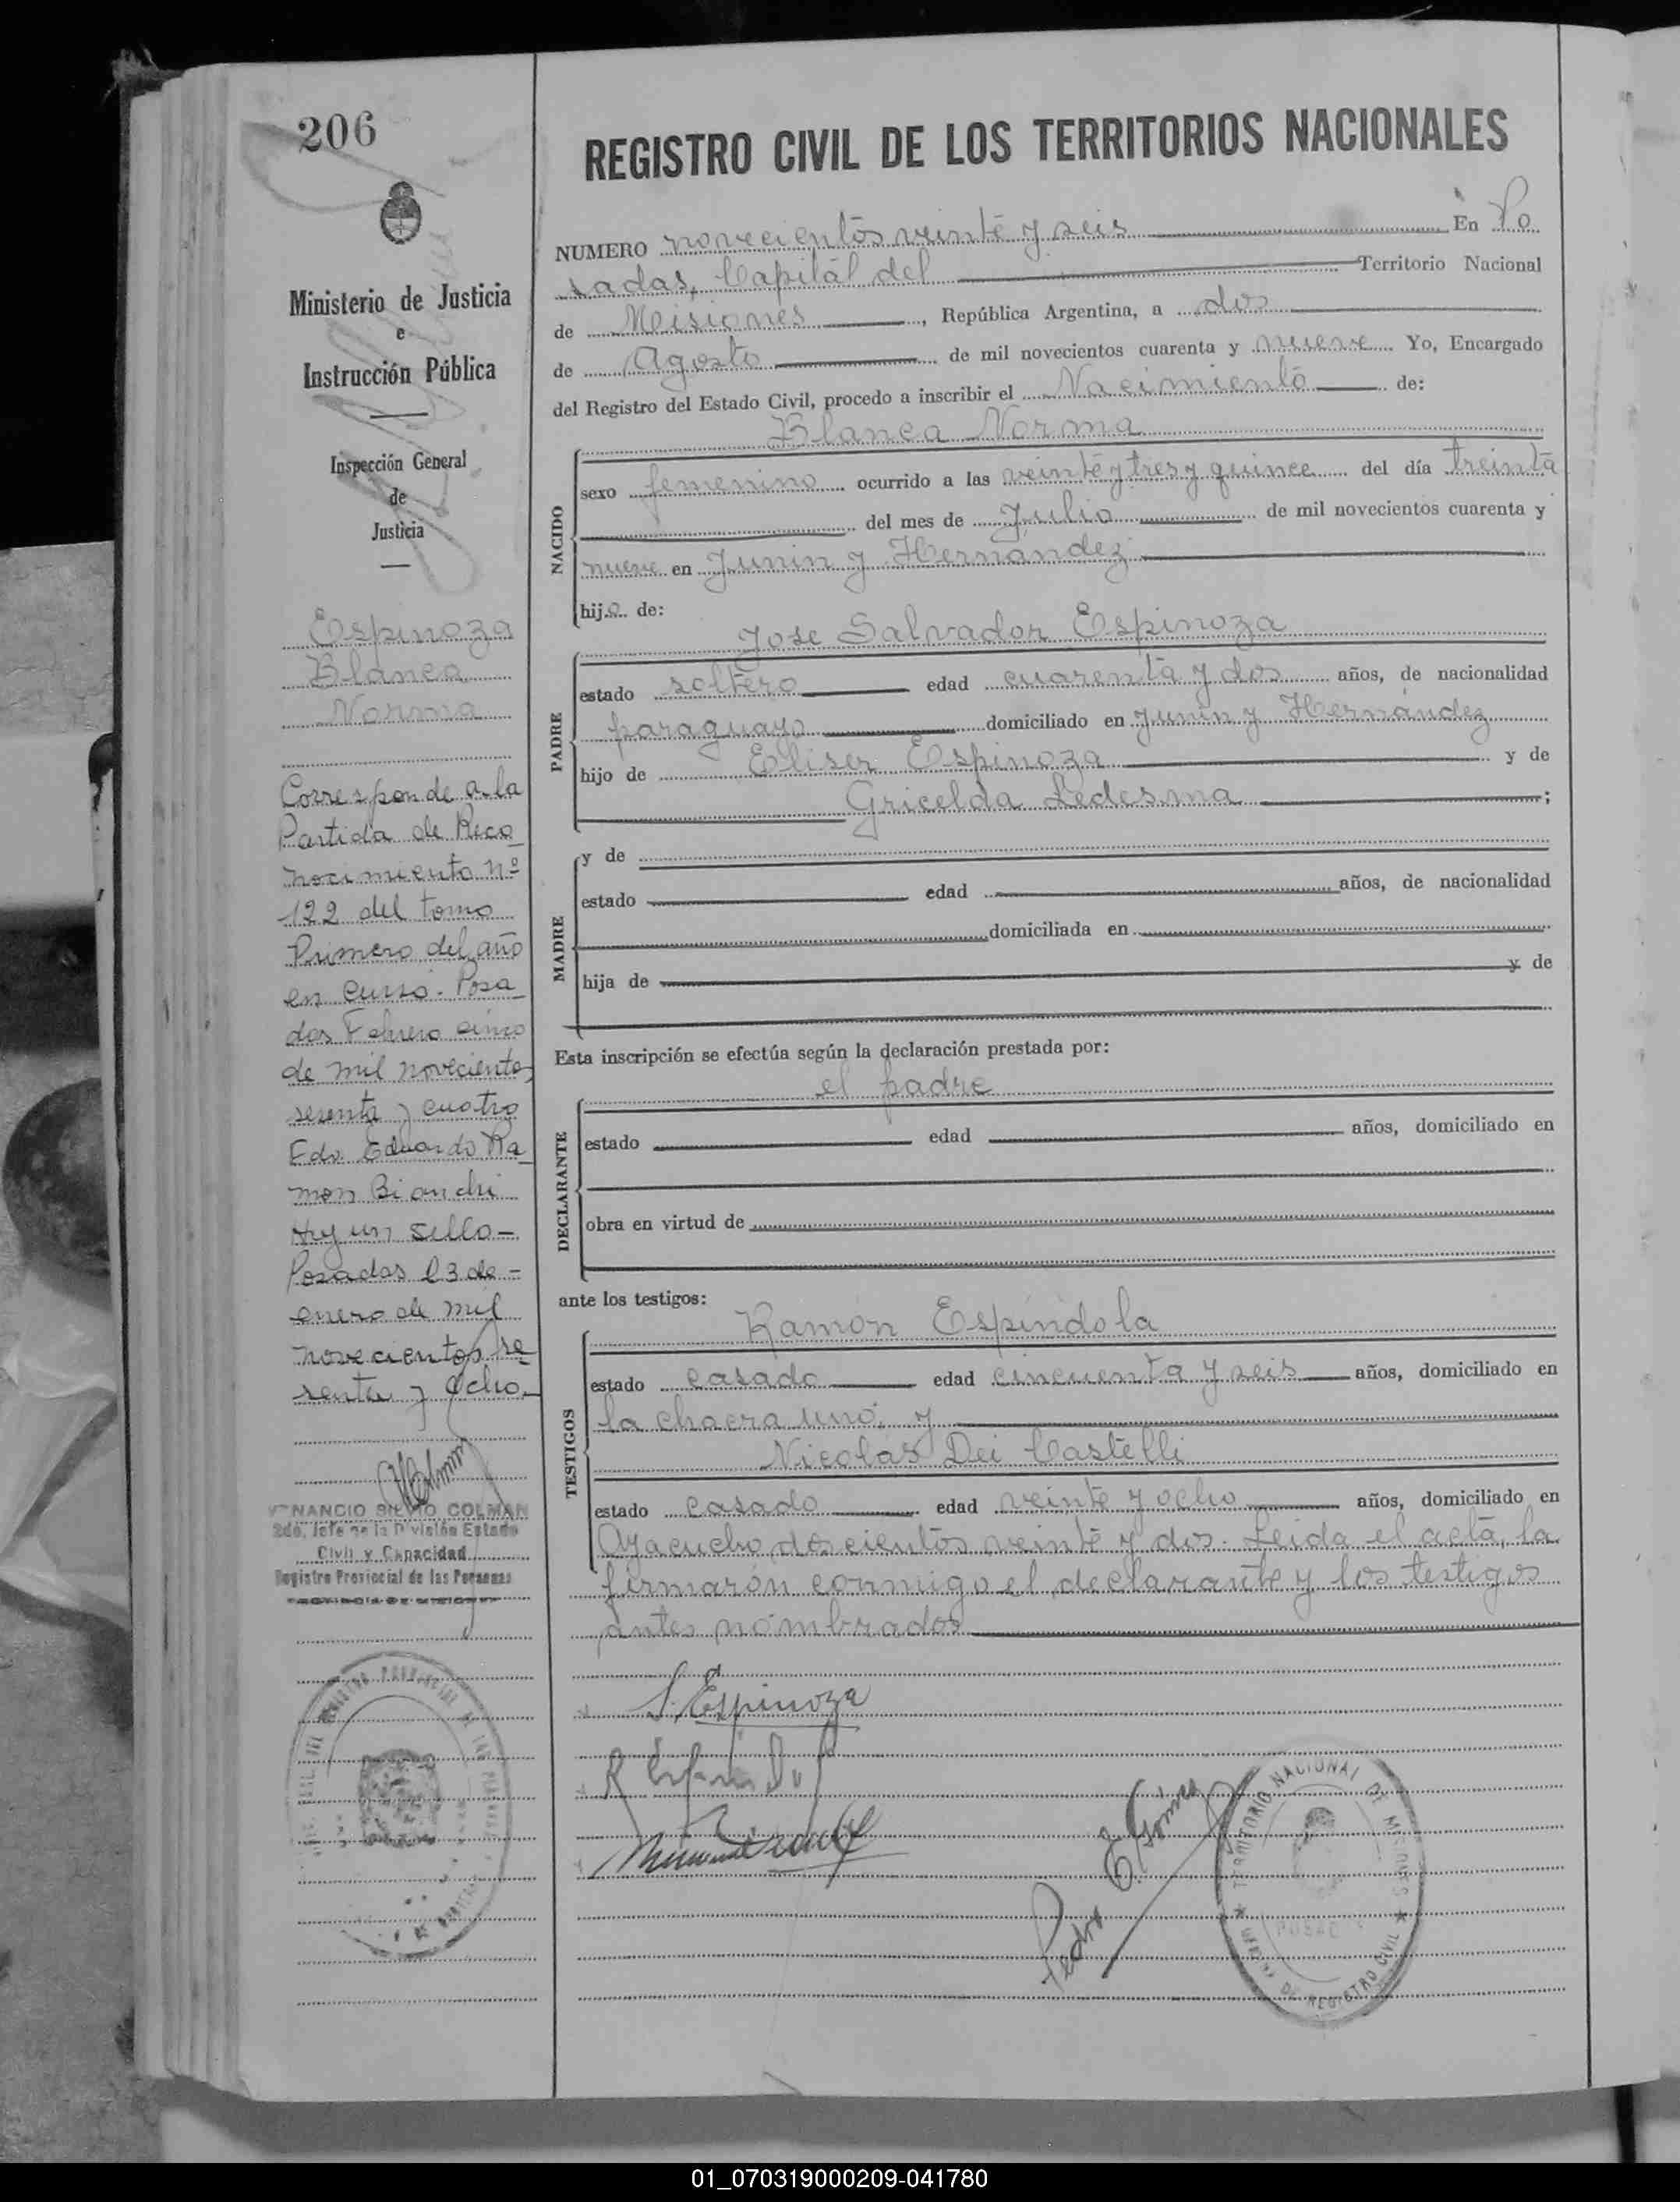 206
Ministerio de Justicia
e
Instrucción Pública
Inspección General
de
Justicia
Espinoza
Blanca
Norma
Corresponde a la
Partida de Reco
nocimiento nº
122 del tomo
Primero del año
en curso. Posa
das Febrero cinco
de mil novecientos
sesenta y cuatro
Fdo. Eduardo Ra
mon Bianchi
Hay un sello-
Posadas 23 de -
enero de mil
novecientos se
senta y ocho.
VENANCIO SILVIO COLMAN
2do. Jefe de la División Estado
Civil y Capacidad
Registro Provincial de las Personas
REGISTRO CIVIL DE LOS TERRITORIOS NACIONALES
NUMERO novecientos veinte y seis En Po
sadas, Capital del Territorio Nacional
de Misiones, República Argentina, a dos
de Agosto de mil novecientos cuarenta y nueve Yo, Encargado
del Registro del Estado Civil, procedo a inscribir el Nacimiento de:
Blanca Norma
NACIDO
sexo femenino ocurrido a las veinte y tres y quince del día treinta
del mes de Julio de mil novecientos cuarenta y
nueve en Junin y Hernández
hija de:
Jose Salvador Espinoza
PADRE
estado soltero edad cuarenta y dos años, de nacionalidad
paraguayo domiciliado en Junin y Hernandez
hijo de Eliser Espinoza y de
Gricelda Ledesma ;
MADRE
y de
estado edad años, de nacionalidad
domiciliada en
hija de y de
Esta inscripción se efectúa según la declaración prestada por:
el padre
DECLARANTE
estado edad años, domiciliado en
obra en virtud de
ante los testigos:
Ramón Espíndola
TESTIGOS
estado casado edad cincuenta y seis años, domiciliado en
la chacra uno, y
Nicolás Dei Castelli
estado casado edad veinte y ocho años, domiciliado en
Ayacucho doscientos veinte y dos. Leida el acta, la
firmarón conmigo el declarante y los testigos
antes nombrados
S. Espinoza
Pedro E. Gómez
TERRITORIO NACIONAL DE MISIONES
DE REGISTRO CIVIL
01_070319000209-041780